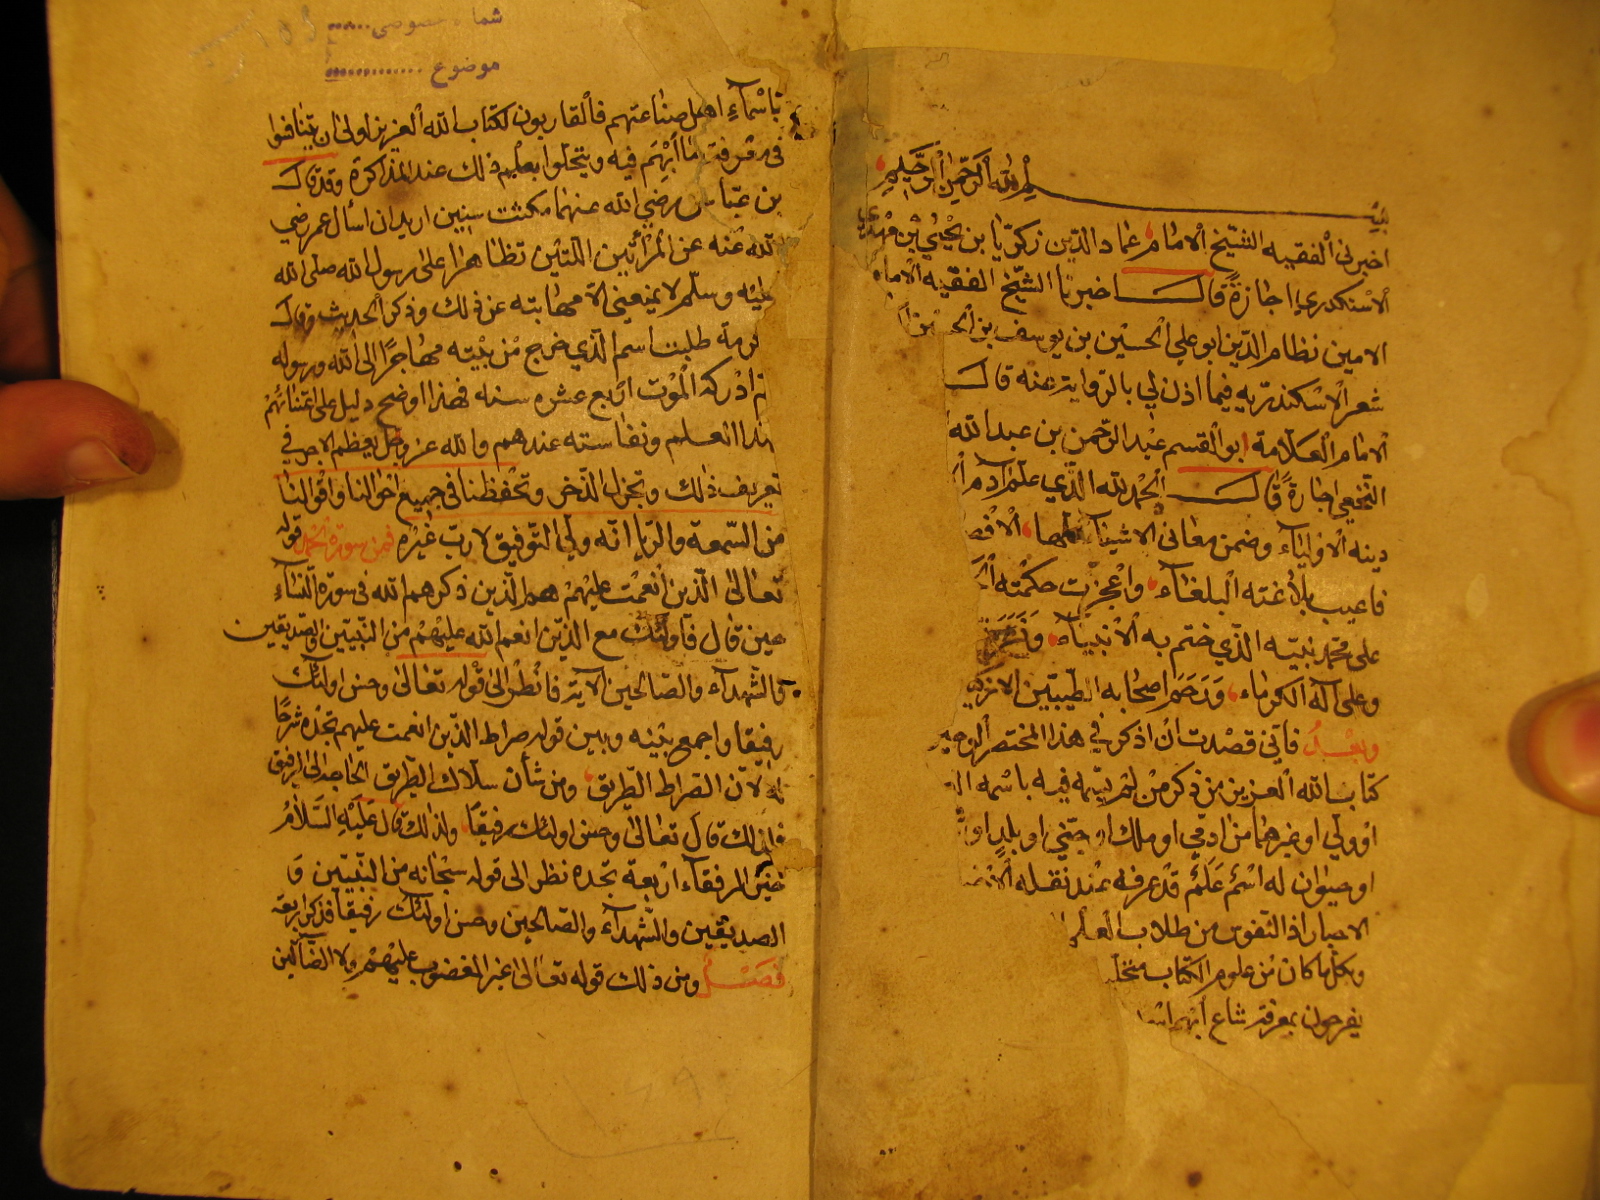 بسم الله الرحمن الرحيم
اخبرنى الفقيه الشيخ الامام عماد الدين زكريا بن يحيى بن مهدي
الاسكندري اجازة قال اخبرنا الشيخ الفقيه الامام
الامين نظام الدين ابو علي الحسين بن يوسف بن الحسن
الاسكندرية فيما اذن لي بالرواية عنه قال
الامام العلامة ابو القسم عبد الرحمن بن عبد الله
اجازة قال الحمد لله الذي علم ادم
الاولياء وضمن معانى الاشياء كلها
بلاغته البلغاء واعجزت حكمته
على محمد نبيه الذي ختم به الانبياء
وعلى آله الكرماء ورحم اصحابه الطيبين
وبعد فاني قصدت ان اذكر في هذا المختصر الوجيز
كتاب الله العزيز من ذكر من لم يسمه فيه باسمه
او ولي او غيرهما من ادمي او ملك او جني او بلد او
او حيوان له اسم علم قد عرف عند نقلة
الاحبار اذ النفوس من طلاب العلم
وبكل ما كان من علوم الكتاب
يفرحون بمعرفة شاعر ابهم
باسماء اهل صناعتهم فالقاربون لكتاب الله العزيز اولى ان يتنافسوا
في معرفة ما ابهم فيه ويتحلوا بعلم ذلك عند المذاكرة وقد قال
بن عباس رضي الله عنهما مكثت سنين اريد ان اسأل عمر رضي
الله عنه عن المرأتين اللتين تظاهرا على رسول الله صلى الله
عليه وسلم لا يمنعني الا مهابته عن ذلك وذكر الحديث وقال
عكرمة طلبت اسم الذي خرج من بيته مهاجرا الى الله ورسوله
ثم ادركه الموت اربع عشره سنه فهذا اوضح دليل على اعتنائهم
بهذا العلم ونفاسته عندهم والله عز وجل يعظم الاجر في
تعريف ذلك ويجزل الذخر ويحفظنا في جميع احوالنا واقوالنا
من السمعة والريا انه ولي التوفيق لا رب غيره فمن سورة الحمد قوله
تعالى الذين انعمت عليهم هم الذين ذكرهم الله في سورة النساء
حين قال فاولئك مع الذين انعم الله عليهم من النبيين والصديقين
والشهداء والصالحين الآية فانظر الى قوله تعالى وحسن اولئك
رفيقا واجمع بينه وبين قوله صراط الذين انعمت عليهم تجده شرحا
له لان الصراط الطريق ومن شأن سلاك الطريق الحاجة الى الرفيق
فلذلك قال تعالى وحسن اولئك رفيقا ولذلك قال عليه السلام
خير الرفقاء اربعة تجده نظر الى قوله سبحانه من النبيين و
الصديقين والشهداء والصالحين وحسن اولئك رفيقا فذكر اربعة
فصل ومن ذلك قوله تعالى غير المغضوب عليهم ولا الضالين
موضوع